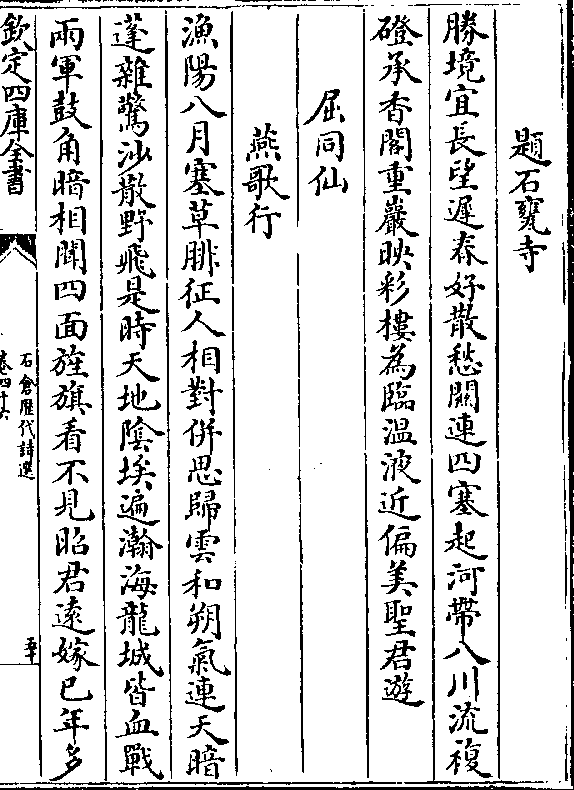 題石甕寺
勝境宜長望遲春好散愁關連四塞起河帶八川流複
磴承香閣重巖映彩樓為臨温液近偏美聖君遊
屈同仙
燕歌行
漁陽八月塞草腓征人相對併思歸雲和朔氣連天暗
蓬雜驚沙散野飛是時天地陰埃遍瀚海龍城皆血戰
兩軍鼓角暗相聞四面旌旗看不見昭君逺嫁已年多
欽定四庫全書
石倉歷代詩選
卷四十六